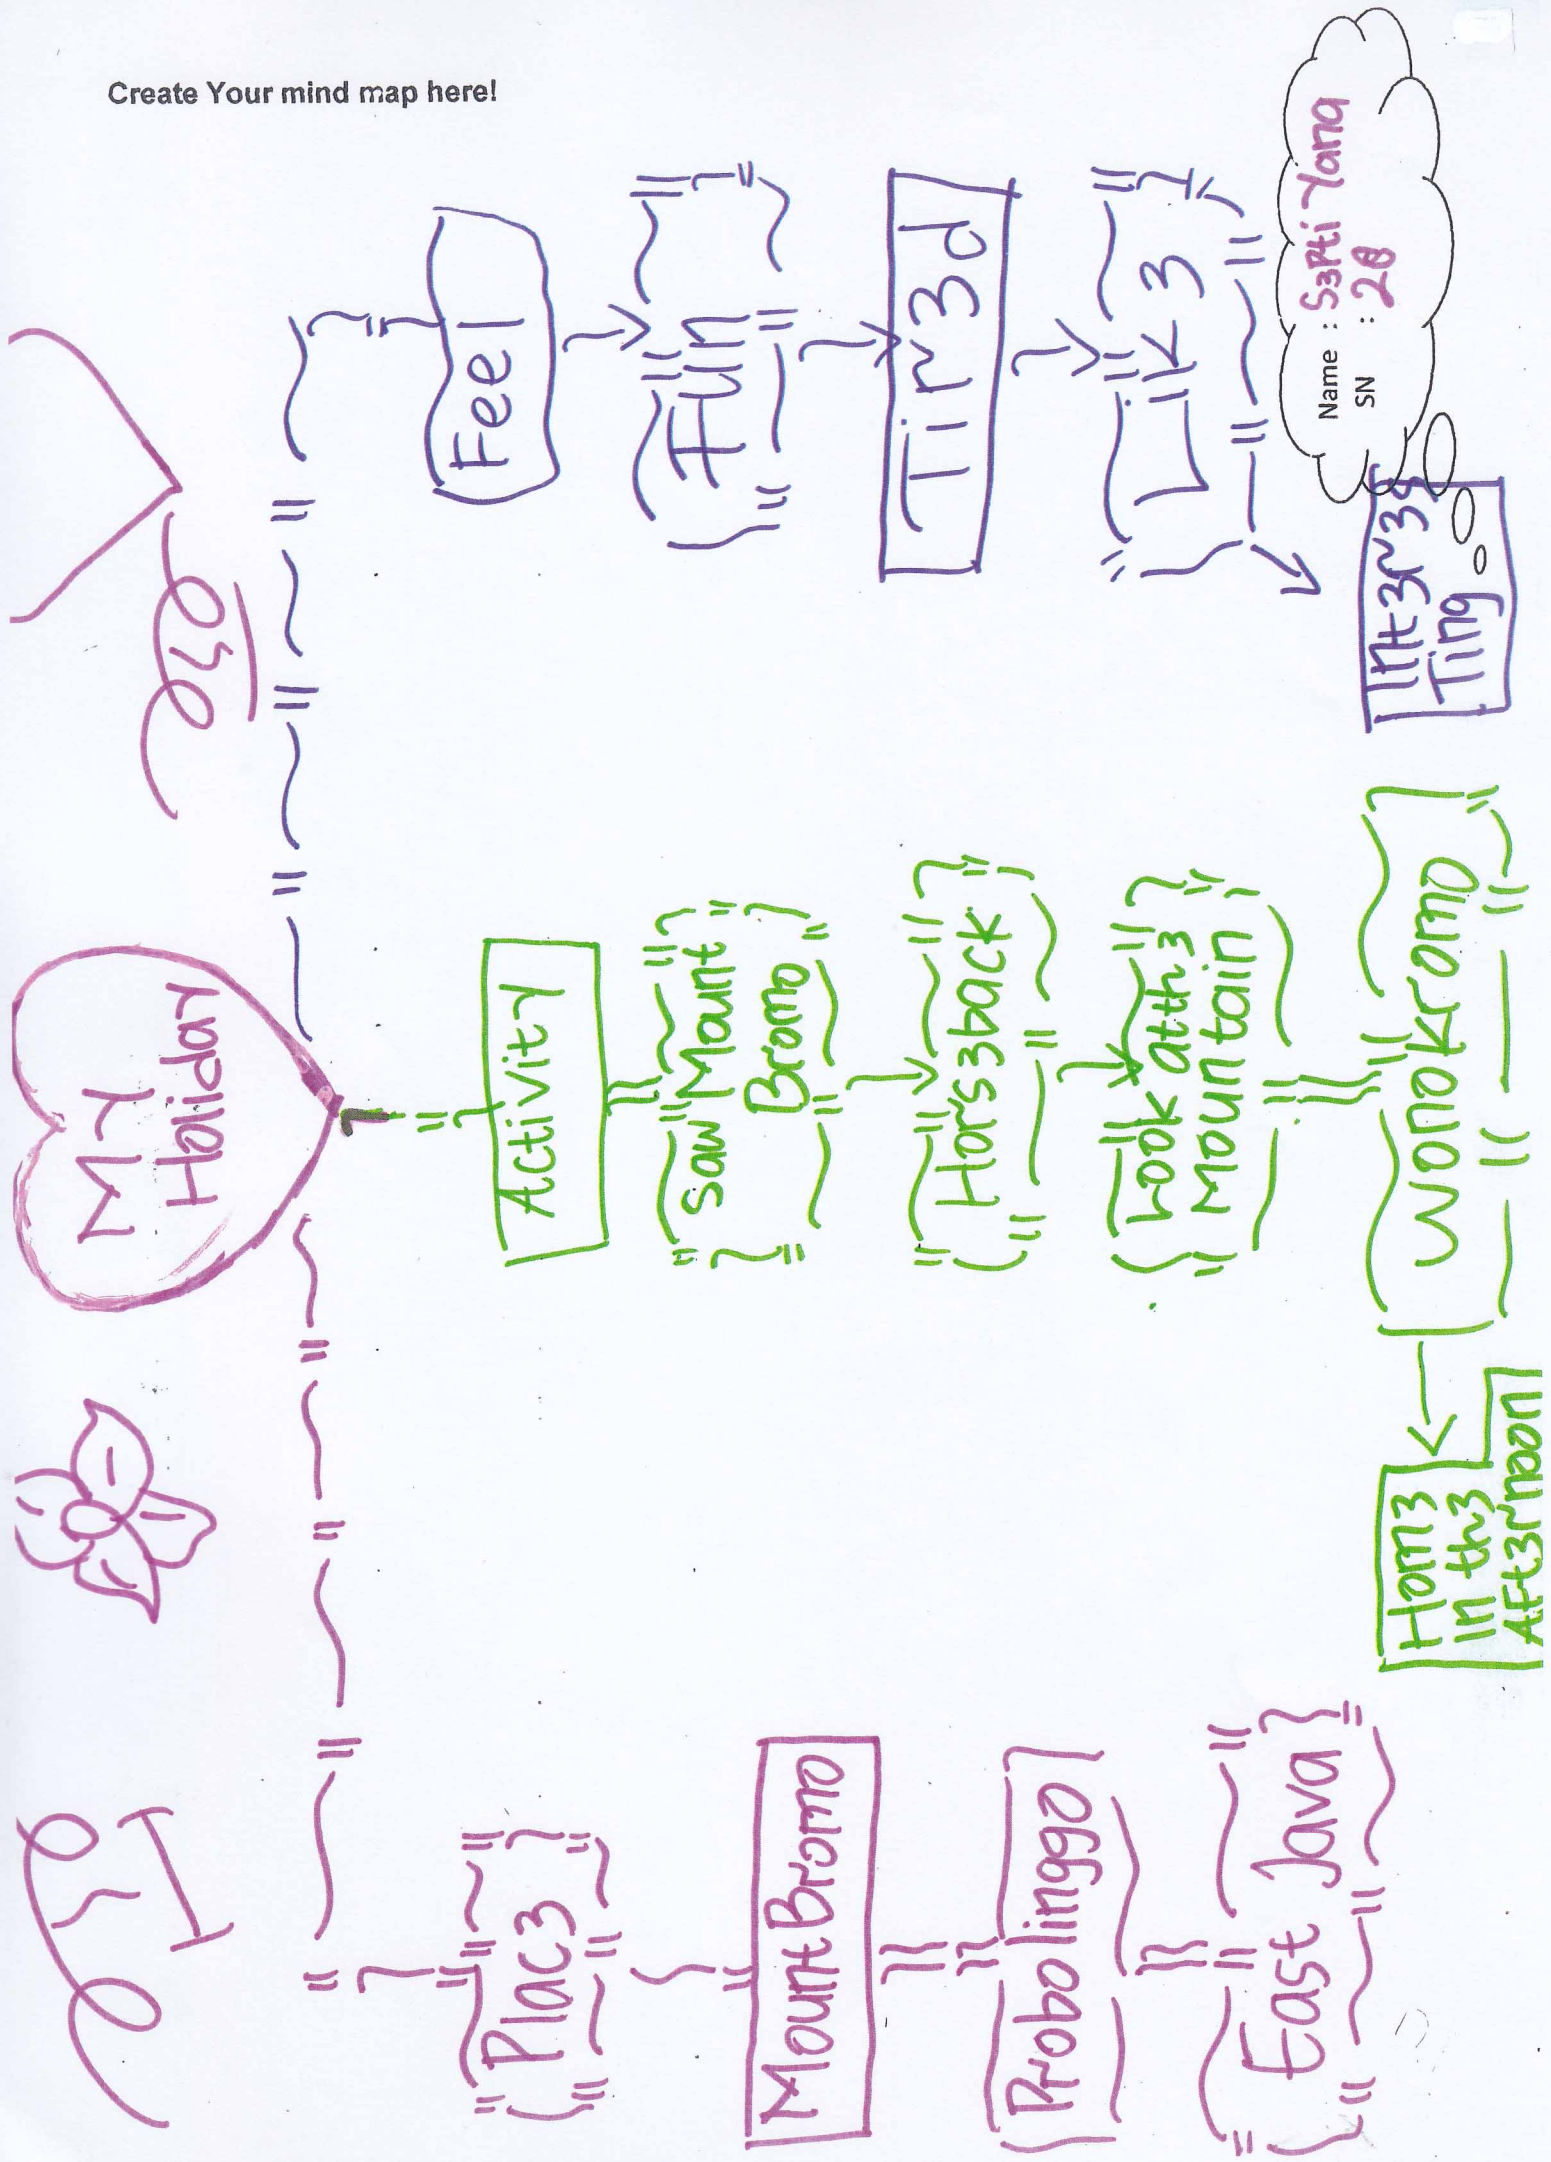 Create Your mind map here!
MY
Holiday
Plac3
Mount Bromo
Probolinggo
East Java
Activity
Saw Mount
Bromo
Hors3back
Look at th3
Mountain
Wonokromo
Hom3
In th3
Aft3rnoon
Feel
Fun
Tir3d
Lik3
Int3r3s
Ting
Name : S3pti Yana
SN : 28